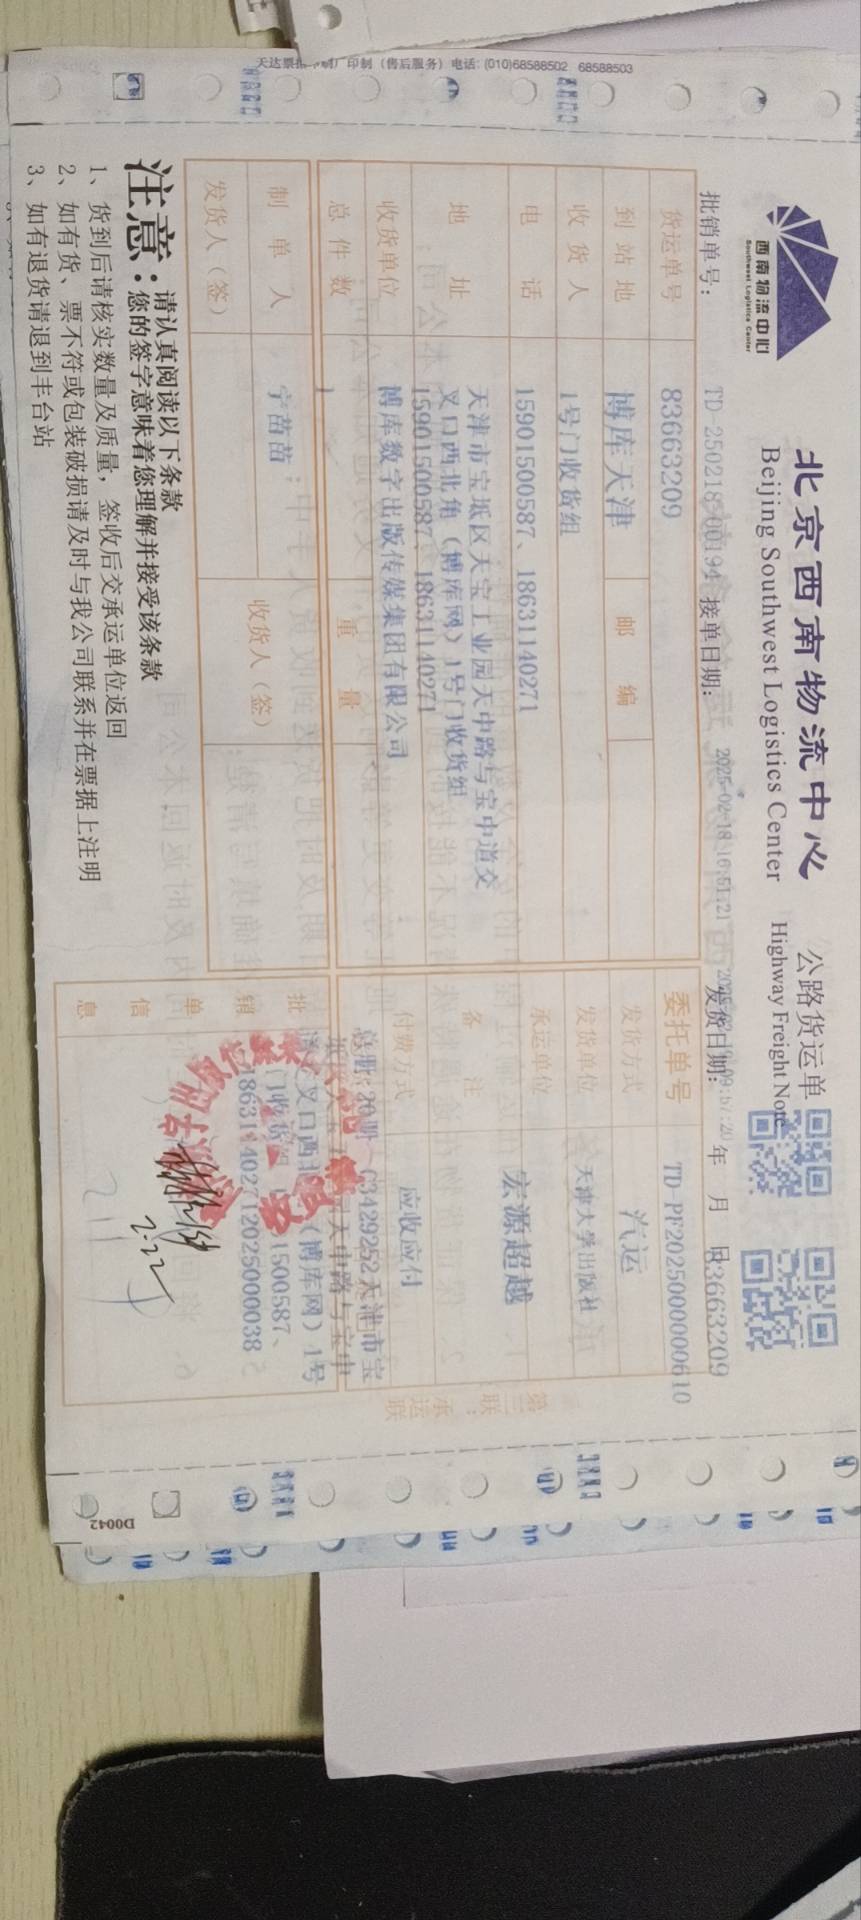 天达票据印刷厂印制（售后服务）电话: (010)68588502 68588503
西南物流中心
Southwest Logistics Center
北京西南物流中心 公路货运单
Beijing Southwest Logistics Center Highway Freight Note
批销单号： TD-250218-00194 接单日期： 2025-02-18 16:51:21 发货日期： 年 月 日
83663209
货运单号 83663209 委托单号 TD-PF20250000000610
到站地 博库天津 邮编 发货方式 汽运
收货人 1号门收货组 发货单位 天津大学出版社
电话 15901500587、18631140271 承运单位 宏源超越
地址 天津市宝坻区天宝工业园天中路与宝中道交
叉口西北角（博库网）1号门收货组
15901500587、18631140271
备注
收货单位 博库数字出版传媒集团有限公司 付费方式 应收应付
总件数 1 重量
总册:20册 63429252天津市宝
天中路与宝中
叉口西北 （博库网）1号
门收货 1500587、
18631140271 2025000038
制单人 宁苗苗
发货人（签） 收货人（签）
批销单信息
2.22
第三联：承运联
注意：请认真阅读以下条款
您的签字意味着您理解并接受该条款
1、货到后请核实数量及质量，签收后交承运单位返回
2、如有货、票不符或包装破损请及时与我公司联系并在票据上注明
3、如有退货请退到丰台站
D0042